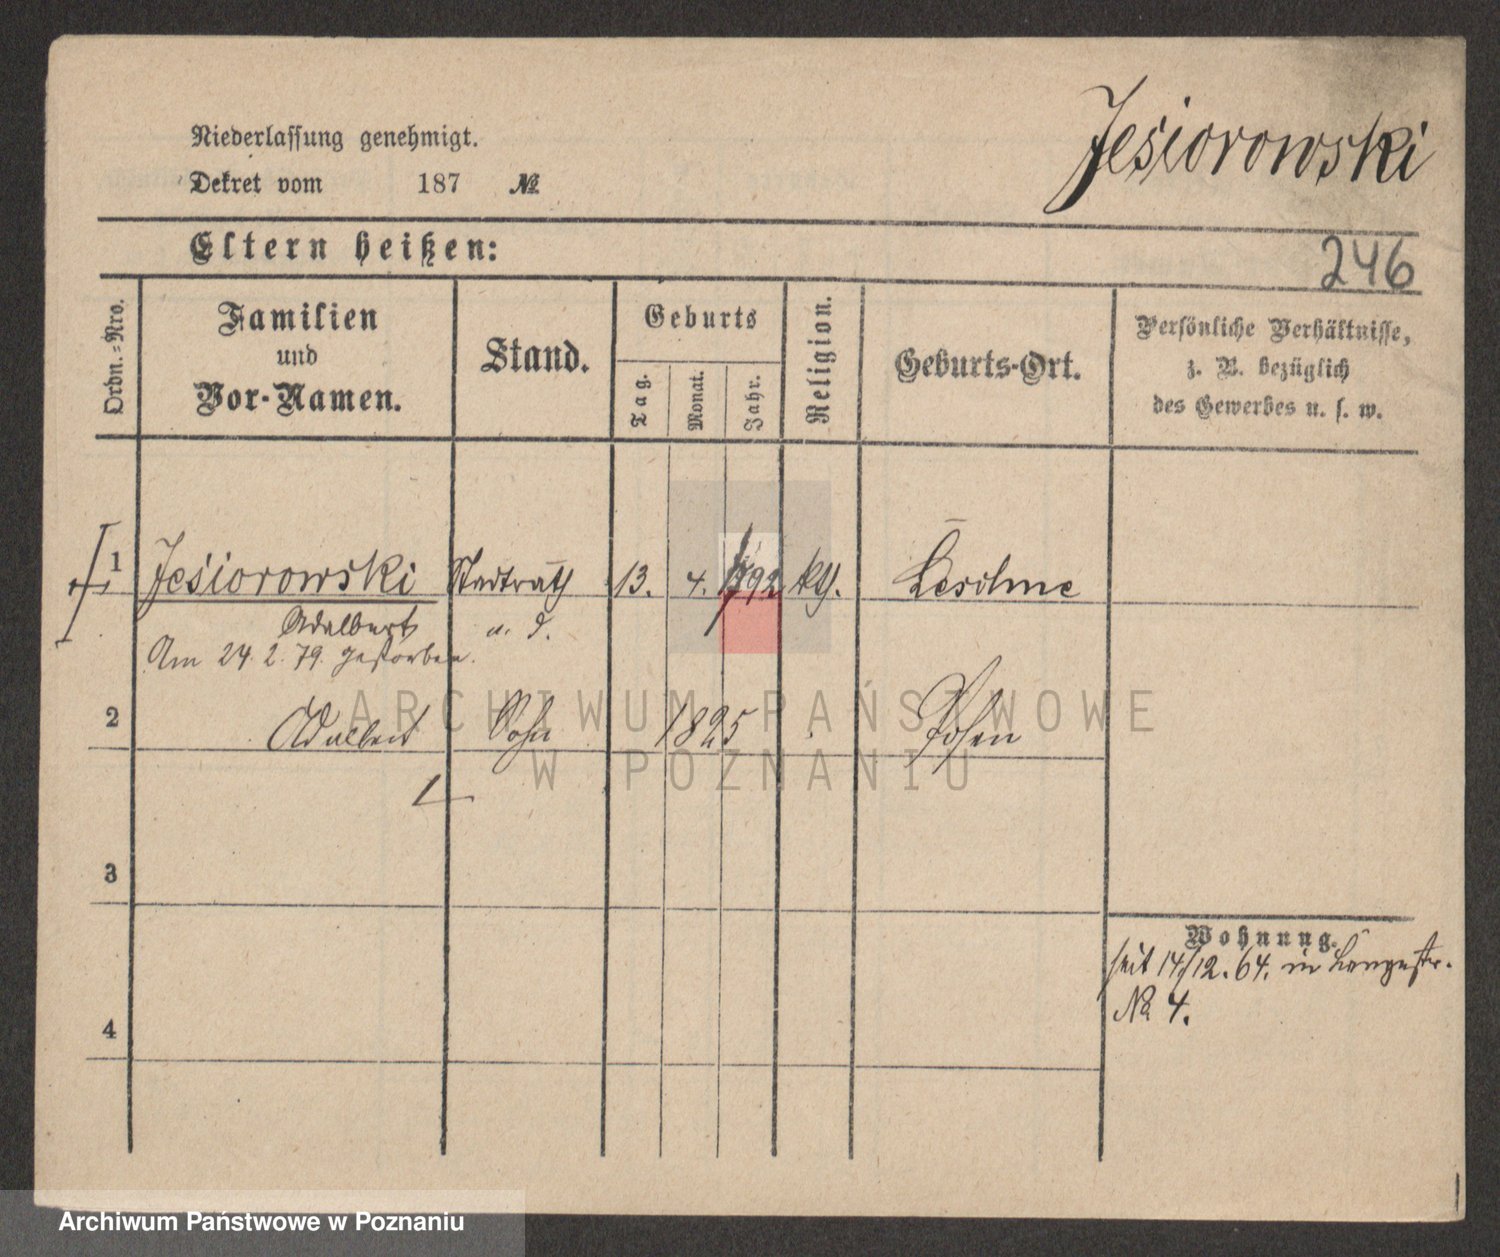 Jesiorowski
Niederlassung genehmigt.
Dekret vom 187 №
Eltern heißen:
246
Ordn.-Nro.
Familien
und
Vor-Namen.
Stand.
Geburts
Tag.
Monat.
Jahr.
Religion.
Geburts-Ort.
Persönliche Verhältnisse,
z. B. bezüglich
des Gewerbes u. s. w.
1 Jesiorowski Stadtrath 13. 4. 1792 kth.
Adalbert a. D.
Am 24. 2. 79. gestorben.
2 Adalbert Sohn 1825 Posen
3
4
Wohnung.
seit 14/12.64. in Langestr.
№ 4.
ARCHIWUM PAŃSTWOWE
W POZNANIU
Archiwum Państwowe w Poznaniu